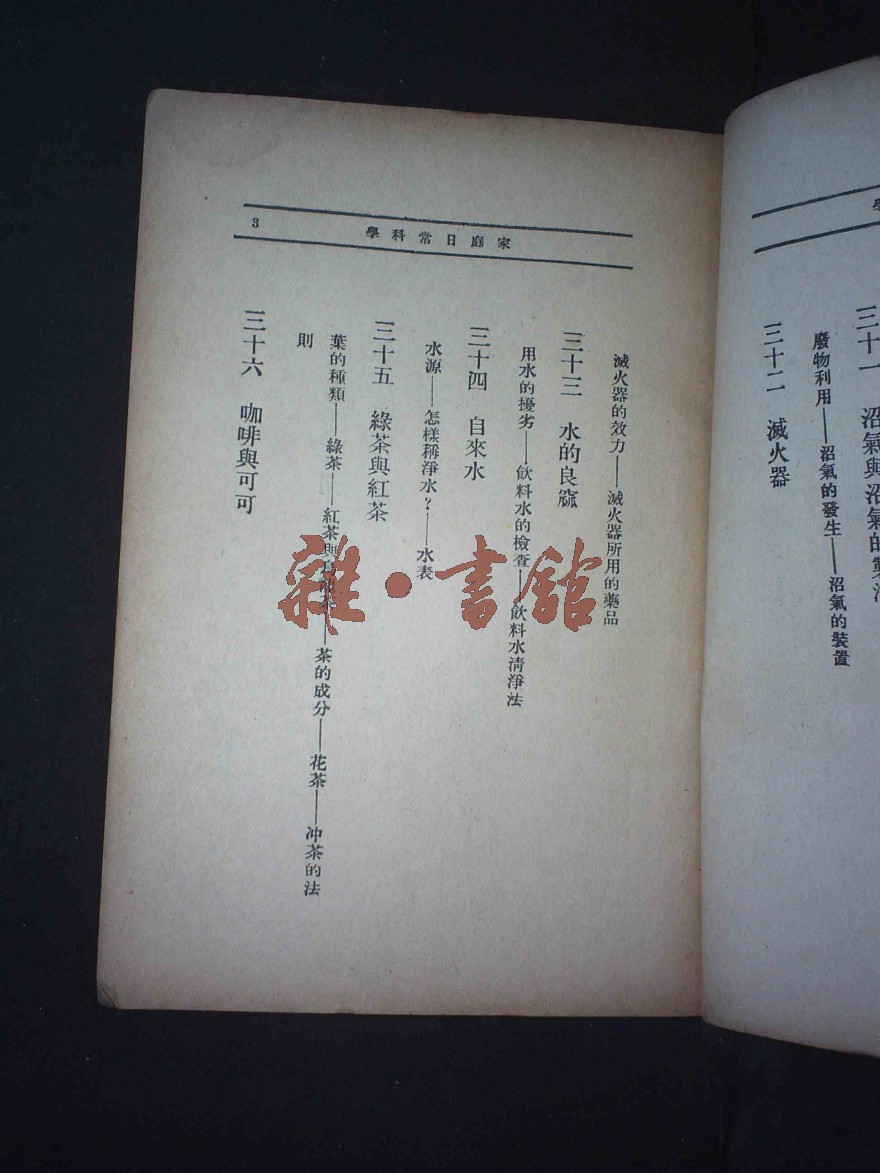 三十一 沼氣與沼氣的製
廢物利用——沼氣的發生——沼氣的裝置
三十二 滅火器
家庭日常科學
3
滅火器的效力——滅火器所用的藥品
三十三 水的良窳
用水的擾劣——飲料水的檢查——飲料水淸淨法
三十四 自來水
水源——怎樣稱淨水?——水表
三十五 綠茶與紅茶
葉的種類——綠茶——紅茶與烏龍茶——茶的成分——花茶——冲茶的法
則
三十六 咖啡與可可
雜·書館